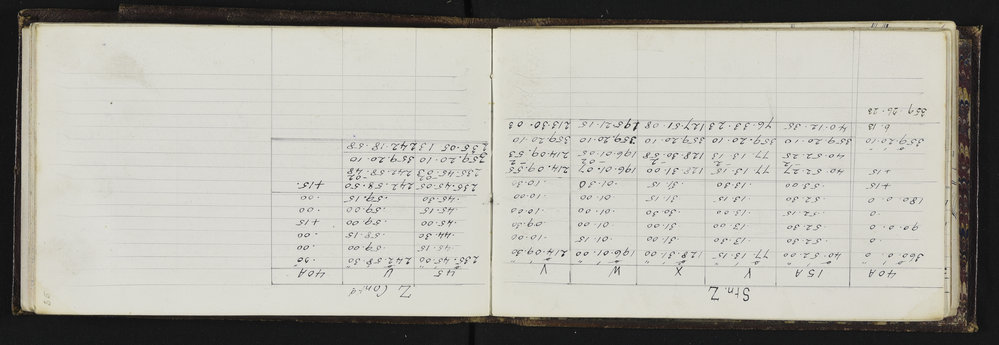 Stn. Z
40A 15A Y X W V
360.0.0 40.52.00 77.13.15 128.31.00 196.01.00 214.09.30
0 .52.30 .13.30 .31.00 01.15 .10.00
90.0.0 .52.30 .13.00 .31.00 .01.00 09.30
0 .52.15 .13.00 .30.30 .01.00 .10.00
180.0.0 .52.30 13.15 .31.15 .01.00 .10.00
+15 .53.00 .13.30 .31.15 .01.30 .10.30
+15 40.52.27 77.13.15 128.31.00 196.01.07 214.09.55
-2 -2 -2 -02 -2
40.52.25 77.13.13 128.30.58 196.01.05 214.09.53
359.20.10 359.20.10 359.20.10 359.20.10 359.20.10 359.20.10
6 15 40.12.35 76.33.23 127.51.08 195.21.15 213.30.03
359.26.25
Z Cont'd
45 U 40A
235.45.00 242.58.30 .30
.45.15 .59.00 .00
44.30 .58.15 .00
.45.00 .59.00 +15
.45.15 .59.00 .00
.45.30 .59.15 .00
235.45.05 242.58.50 +15.
-02 -02
235.45.03 242.58.48
359.20.10 359.20.10
235.05.13 242.18.58